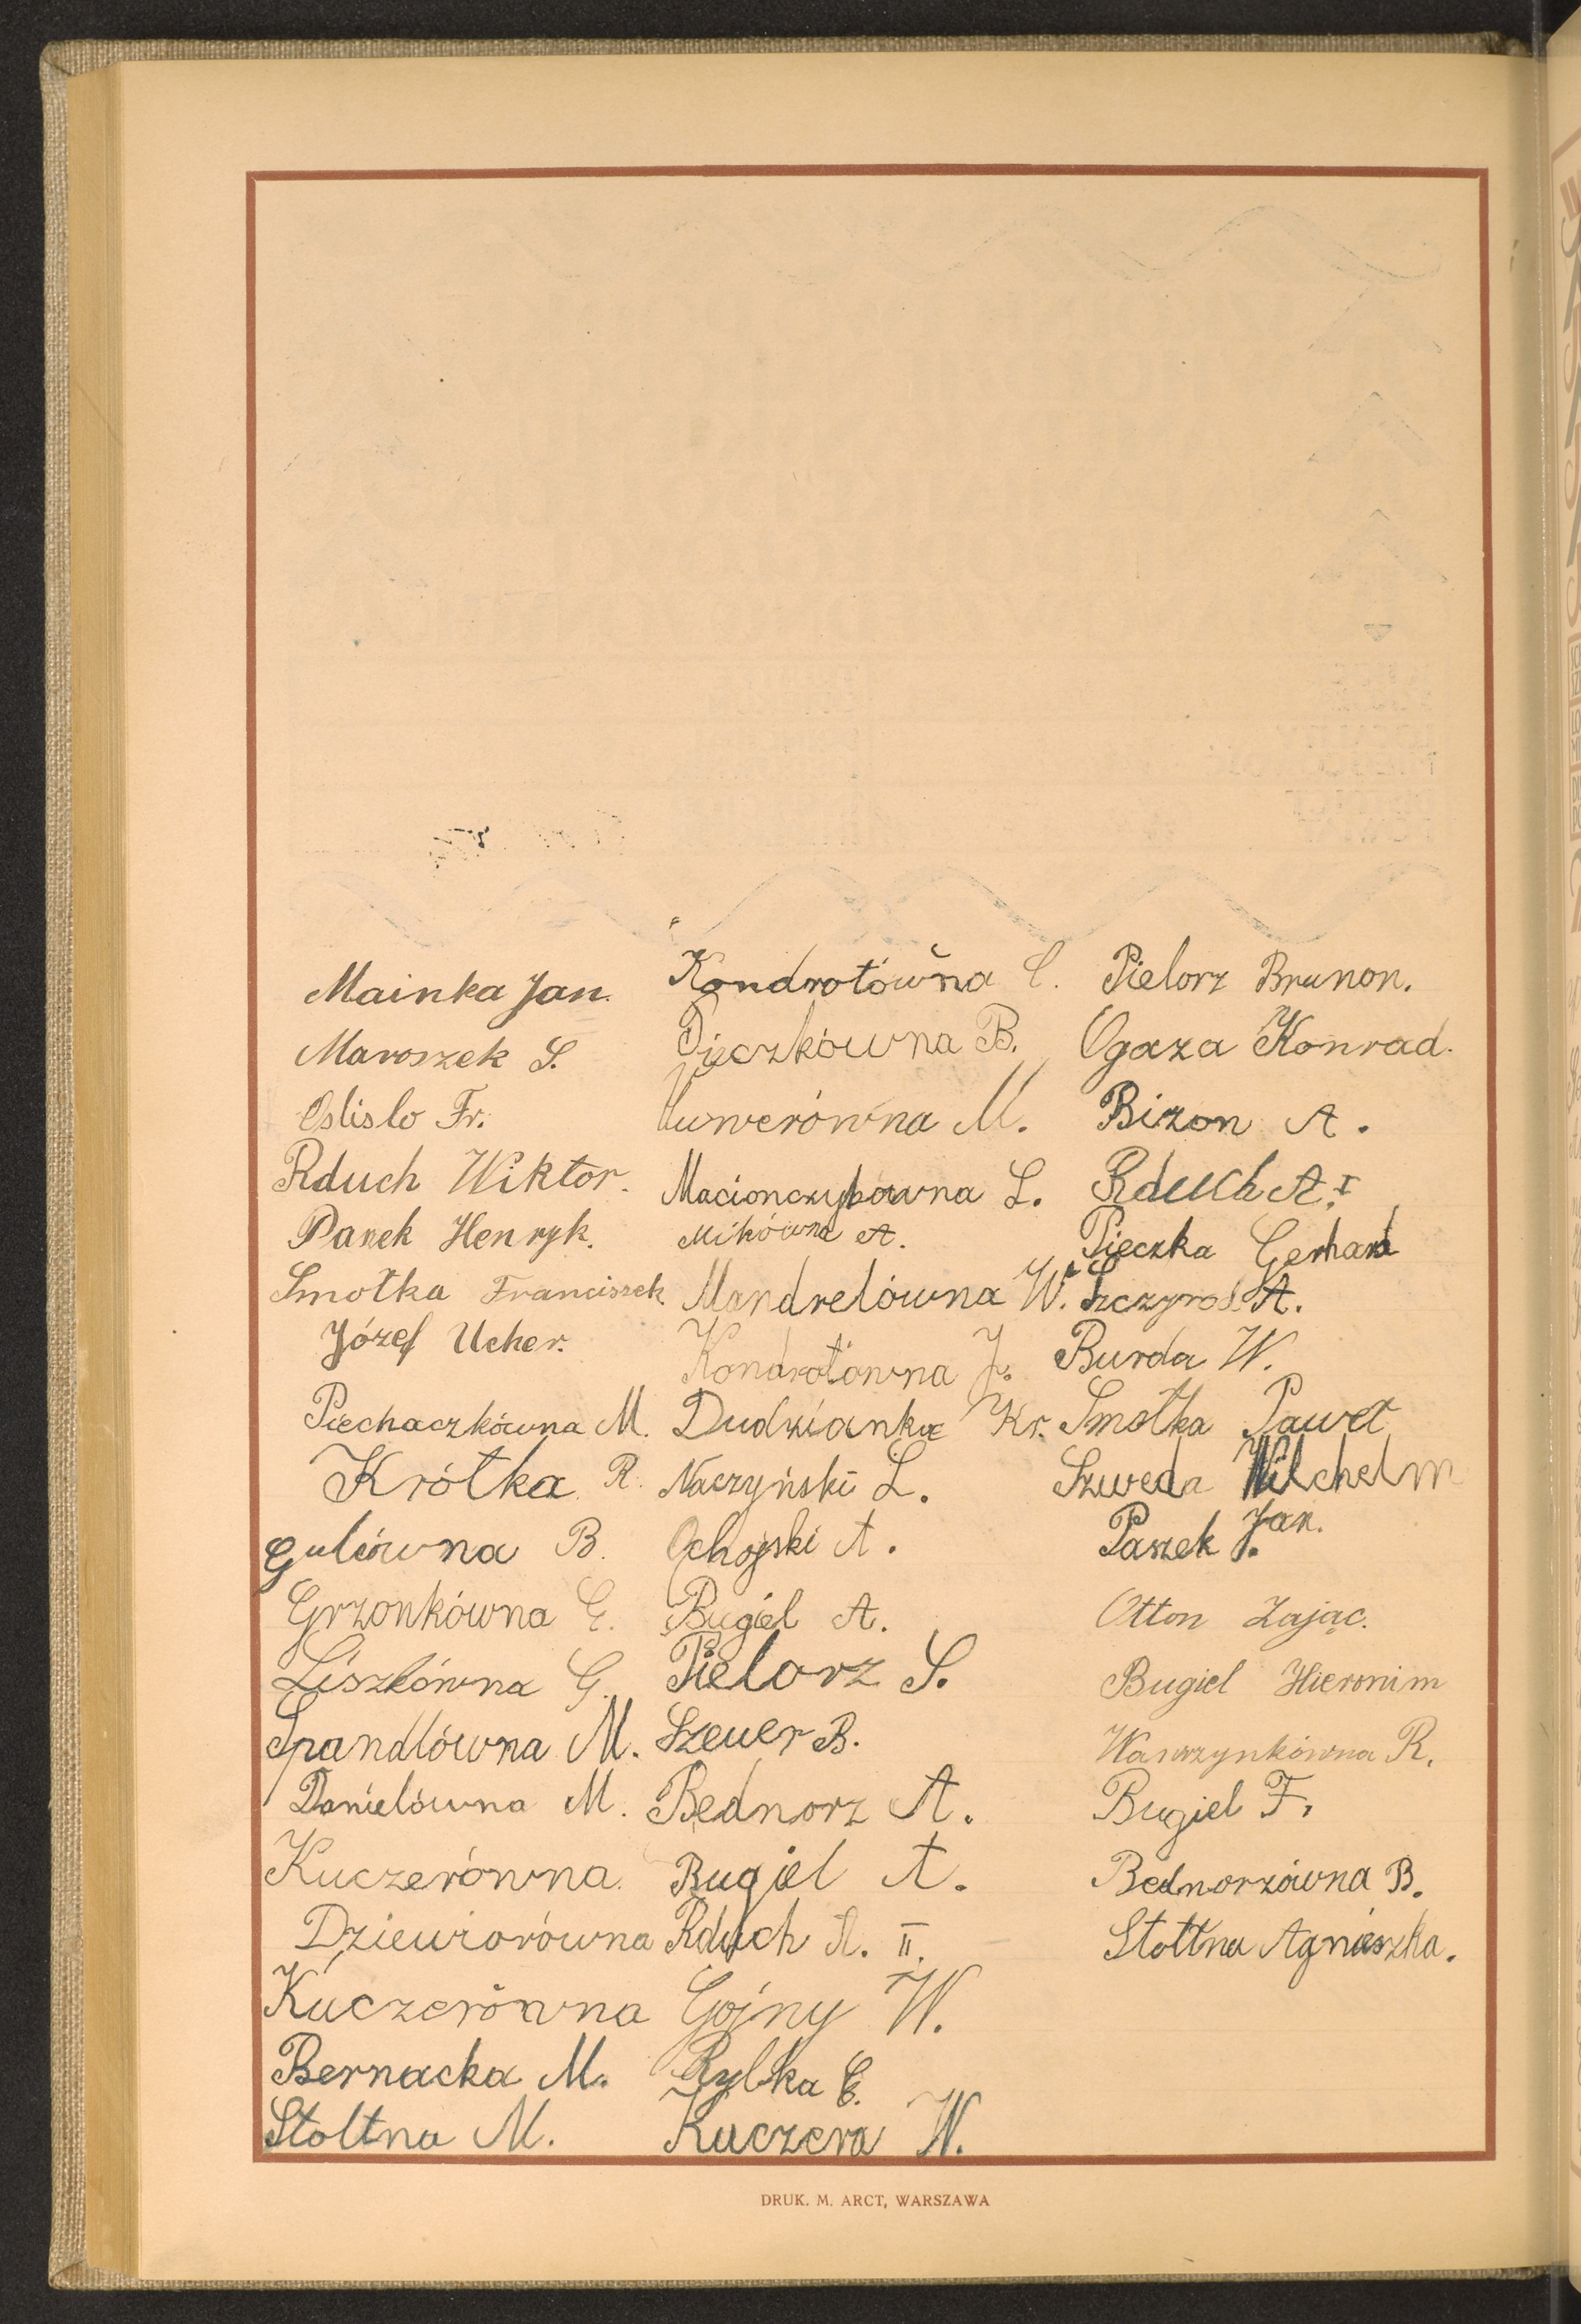 Mainka Jan.
Maroszek S.
Oslislo Fr.
Rduch Wiktor.
Panek Henryk.
Smołka Franciszek
Józef Ucher.
Piechaczkówna M.
Krótka R.
Gulówna B.
Grzonkówna G.
Liszkówna G.
Spandlówna M.
Danielówna M.
Kuczerówna
Dziewiorówna
Kuczerówna
Bernacka M.
Stoltna M.
Kondrotówna C.
Pieczkówna B.
M.
Macionczykówna L.
Mikówna A.
Mandrelówna W.
Kondrotówna J.
Dudzianka Kr.
Naczyński L.
Ochojski A.
Bugiel A.
Pielorz S.
Szeuer B.
Bednorz A.
Bugiel A.
Rduch A. II.
Gojny W.
Rybka E.
Kuczera W.
Pielorz Brunon.
Ogaza Konrad.
Bizon A.
Rduch A. I
Pieczka Gerhard
A.
Burda W.
Smołka Paweł
Szweda Wilchelm
Paszek J. Jan.
Otton Zając.
Bugiel Hieronim
Wawrzynkówna R.
Bugiel F.
Bednorzówna B.
Stołtna Agnieszka.
DRUK. M. ARCT, WARSZAWA